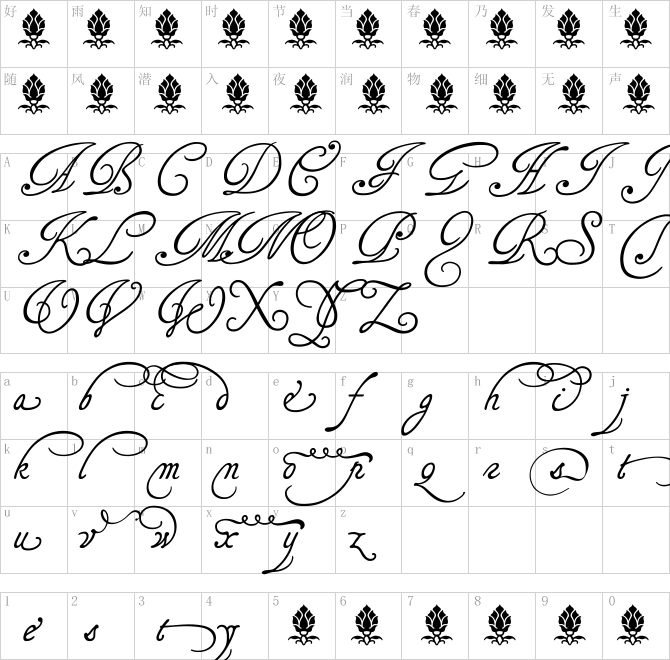 好 雨 知 时 节 当 春 乃 发 生
随 风 潜 入 夜 润 物 细 无 声
A B C D E F G H I J
K L M N O P Q R S T
U V W X Y Z
a b c d e f g h i j
k l m n o p q r s t
u v w x y z
1 2 3 4 5 6 7 8 9 0